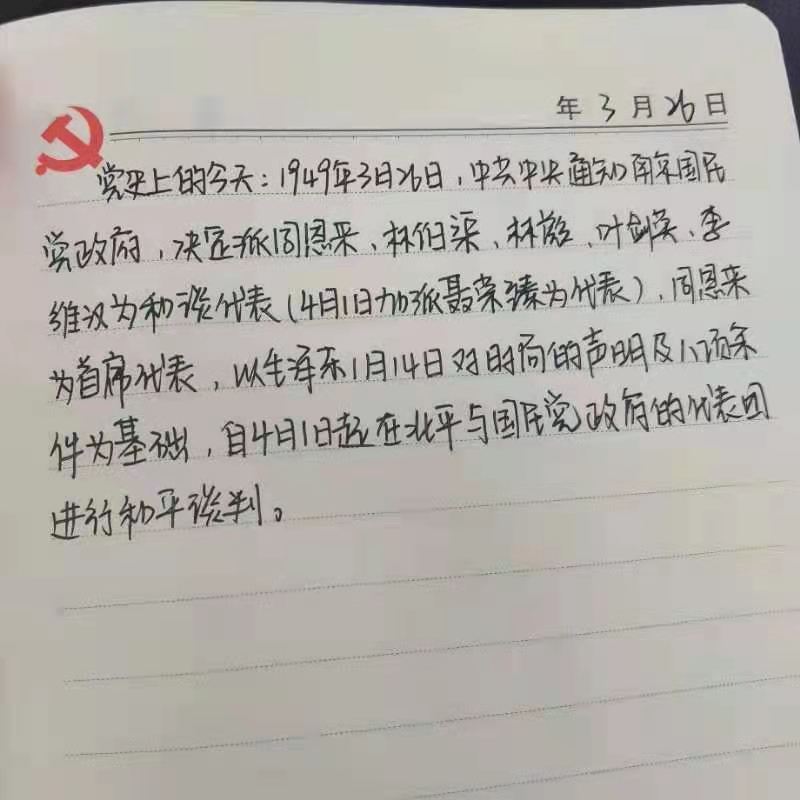 年 3 月 26 日
党史上的今天：1949年3月26日，中共中央通知南京国民
党政府，决定派周恩来、林伯渠、林彪、叶剑英、李
维汉为和谈代表（4月1日加派聂荣臻为代表），周恩来
为首席代表，以毛泽东1月14日对时局的声明及八项条
件为基础，自4月1日起在北平与国民党政府的代表团
进行和平谈判。